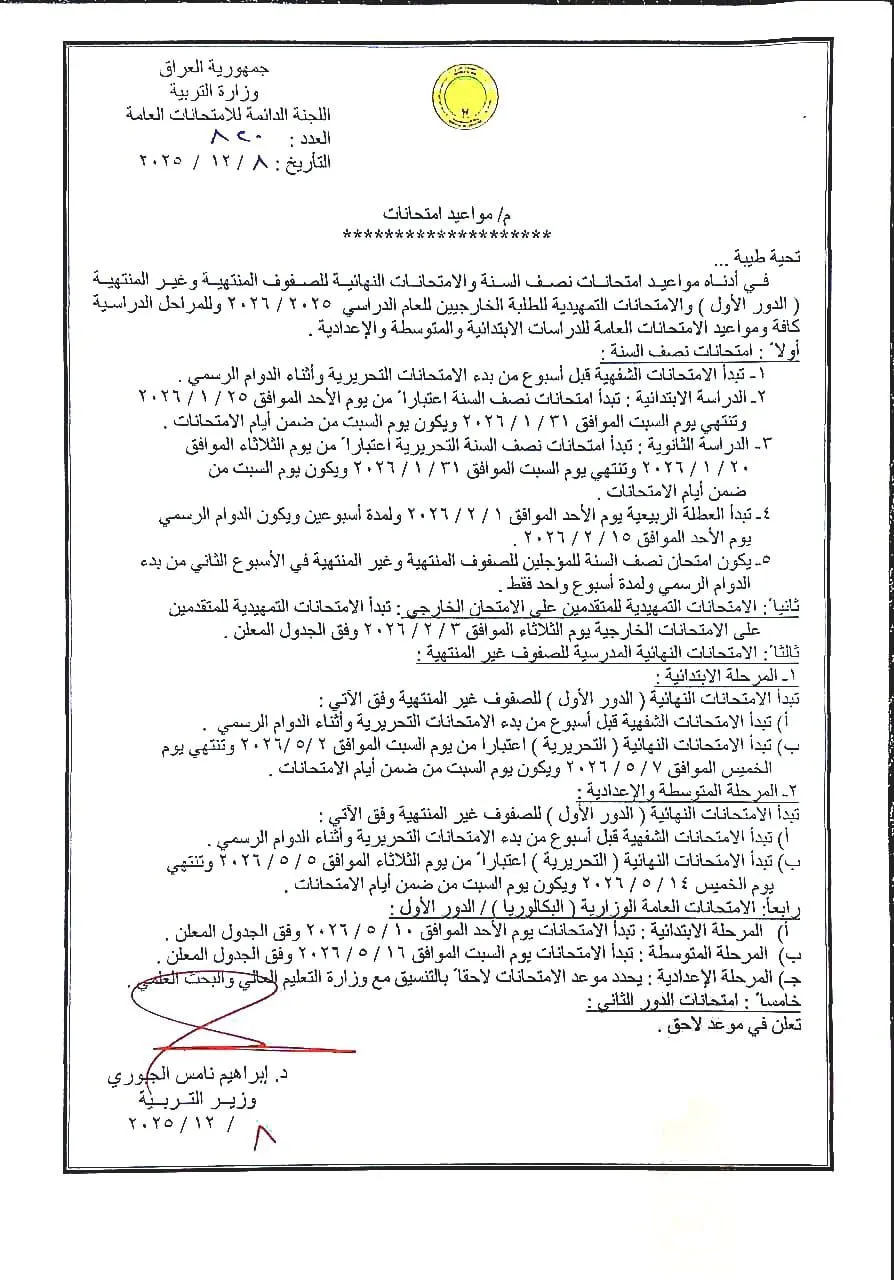 جمهورية العراق
وزارة التربية
اللجنة الدائمة للامتحانات العامة
العدد : ٨٢٠
التأريخ : ٨ / ١٢ / ٢٠٢٥
م/ مواعيد امتحانات
********************
تحية طيبة ...
في أدناه مواعيد امتحانات نصف السنة والامتحانات النهائية للصفوف المنتهية وغير المنتهية
( الدور الأول ) والامتحانات التمهيدية للطلبة الخارجيين للعام الدراسي ٢٠٢٥ / ٢٠٢٦ وللمراحل الدراسية
كافة ومواعيد الامتحانات العامة للدراسات الابتدائية والمتوسطة والإعدادية .
أولاً : امتحانات نصف السنة :
١- تبدأ الامتحانات الشفهية قبل أسبوع من بدء الامتحانات التحريرية وأثناء الدوام الرسمي .
٢- الدراسة الابتدائية : تبدأ امتحانات نصف السنة اعتباراً من يوم الأحد الموافق ٢٥ / ١ / ٢٠٢٦
وتنتهي يوم السبت الموافق ٣١ / ١ / ٢٠٢٦ ويكون يوم السبت من ضمن أيام الامتحانات .
٣- الدراسة الثانوية : تبدأ امتحانات نصف السنة التحريرية اعتباراً من يوم الثلاثاء الموافق
٢٠ / ١ / ٢٠٢٦ وتنتهي يوم السبت الموافق ٣١ / ١ / ٢٠٢٦ ويكون يوم السبت من
ضمن أيام الامتحانات .
٤- تبدأ العطلة الربيعية يوم الأحد الموافق ١ / ٢ / ٢٠٢٦ ولمدة أسبوعين ويكون الدوام الرسمي
يوم الأحد الموافق ١٥ / ٢ / ٢٠٢٦ .
٥- يكون امتحان نصف السنة للمؤجلين للصفوف المنتهية وغير المنتهية في الأسبوع الثاني من بدء
الدوام الرسمي ولمدة أسبوع واحد فقط .
ثانياً: الامتحانات التمهيدية للمتقدمين على الامتحان الخارجي : تبدأ الامتحانات التمهيدية للمتقدمين
على الامتحانات الخارجية يوم الثلاثاء الموافق ٣ / ٢ / ٢٠٢٦ وفق الجدول المعلن .
ثالثاً: الامتحانات النهائية المدرسية للصفوف غير المنتهية :
١- المرحلة الابتدائية :
تبدأ الامتحانات النهائية ( الدور الأول ) للصفوف غير المنتهية وفق الآتي :
أ) تبدأ الامتحانات الشفهية قبل أسبوع من بدء الامتحانات التحريرية وأثناء الدوام الرسمي .
ب) تبدأ الامتحانات النهائية ( التحريرية ) اعتبارا من يوم السبت الموافق ٢ /٥ /٢٠٢٦ وتنتهي يوم
الخميس الموافق ٧ / ٥ / ٢٠٢٦ ويكون يوم السبت من ضمن أيام الامتحانات .
٢- المرحلة المتوسطة والإعدادية :
تبدأ الامتحانات النهائية ( الدور الأول ) للصفوف غير المنتهية وفق الآتي :
أ) تبدأ الامتحانات الشفهية قبل أسبوع من بدء الامتحانات التحريرية وأثناء الدوام الرسمي .
ب) تبدأ الامتحانات النهائية ( التحريرية ) اعتباراً من يوم الثلاثاء الموافق ٥ / ٥ / ٢٠٢٦ وتنتهي
يوم الخميس ١٤ / ٥ / ٢٠٢٦ ويكون يوم السبت من ضمن أيام الامتحانات .
رابعاً: الامتحانات العامة الوزارية ( البكالوريا ) / الدور الأول :
أ) المرحلة الابتدائية : تبدأ الامتحانات يوم الأحد الموافق ١٠ / ٥ / ٢٠٢٦ وفق الجدول المعلن .
ب) المرحلة المتوسطة : تبدأ الامتحانات يوم السبت الموافق ١٦ / ٥ / ٢٠٢٦ وفق الجدول المعلن .
جـ) المرحلة الإعدادية : يحدد موعد الامتحانات لاحقاً بالتنسيق مع وزارة التعليم العالي والبحث العلمي .
خامساً : امتحانات الدور الثاني :
تعلن في موعد لاحق .
د. إبراهيم نامس الجبوري
وزيـر التـربـيـة
٨ / ١٢ / ٢٠٢٥